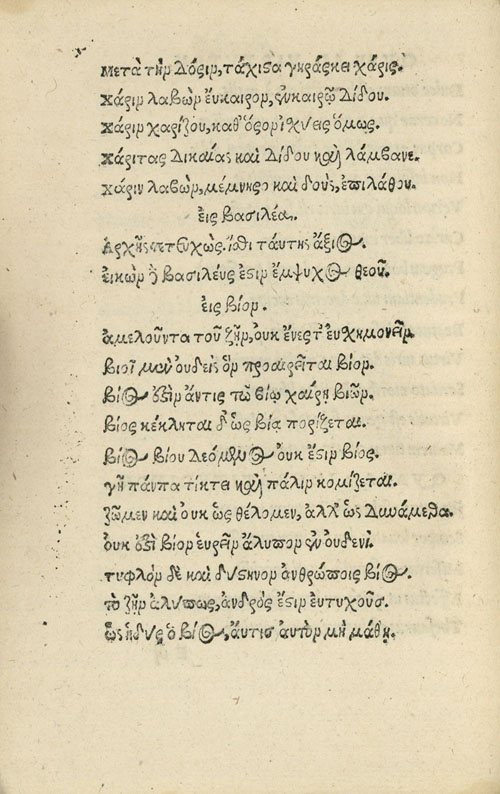 μετὰ τὴν δόσιν, τάχιστα γηράσκει χάρις.
χάριν λαβὼν ἔυκαιρον, ἐν καιρῷ δίδου.
χάριν χαρίζου, καθ' ὅσον ἰσχύεις ὅμως.
χάριτας δικαίας καὶ δίδου καὶ λάμβανε.
χάριν λαβὼν, μέμνησο καὶ δοὺς, ἐπιλάθου.
ἐις βασιλέα.
ἀρχῆς τετευχὼς ἴσθι ταύτης ἄξιος.
ἐικὼν ἢ βασιλεύς ἐστιν ἔμψυχος θεοῦ.
ἐις βίον.
ἀμελοῦντα τοῦ ζῆν, ουκ ἔνεστ' ἐυσχημονεῖν.
βιοῖ μὲν ὀυδεὶς ὃν προαιρεῖται βίον.
βίος ἐστὶν ἄν τις τῷ βίῳ χαίρῃ βιῶν.
βίος κέκληται δ' ὡς βίᾳ πορίζεται.
βίος βίου δεόμενος ὀυκ ἔστιν βίος.
γῆ πάντα τίκτει καὶ πάλιν κομίζεται.
ζῶμεν καὶ ουκ ὡς θέλομεν, ἀλλ' ὡς δυνάμεθα.
ουκ ἔστι βίον ἑυρεῖν ἄλυπον ἐν ουδενί.
τυφλὸν δὲ καὶ δύστηνον ἀνθρώποις βίος.
τὸ ζῆν ἀλύπως, ἀνδρός ἐστιν ἐυτυχοῦς.
ὡς ἡδὺς ὁ βίος, ἄν τις αὐτὸν μὴ μάθῃ.